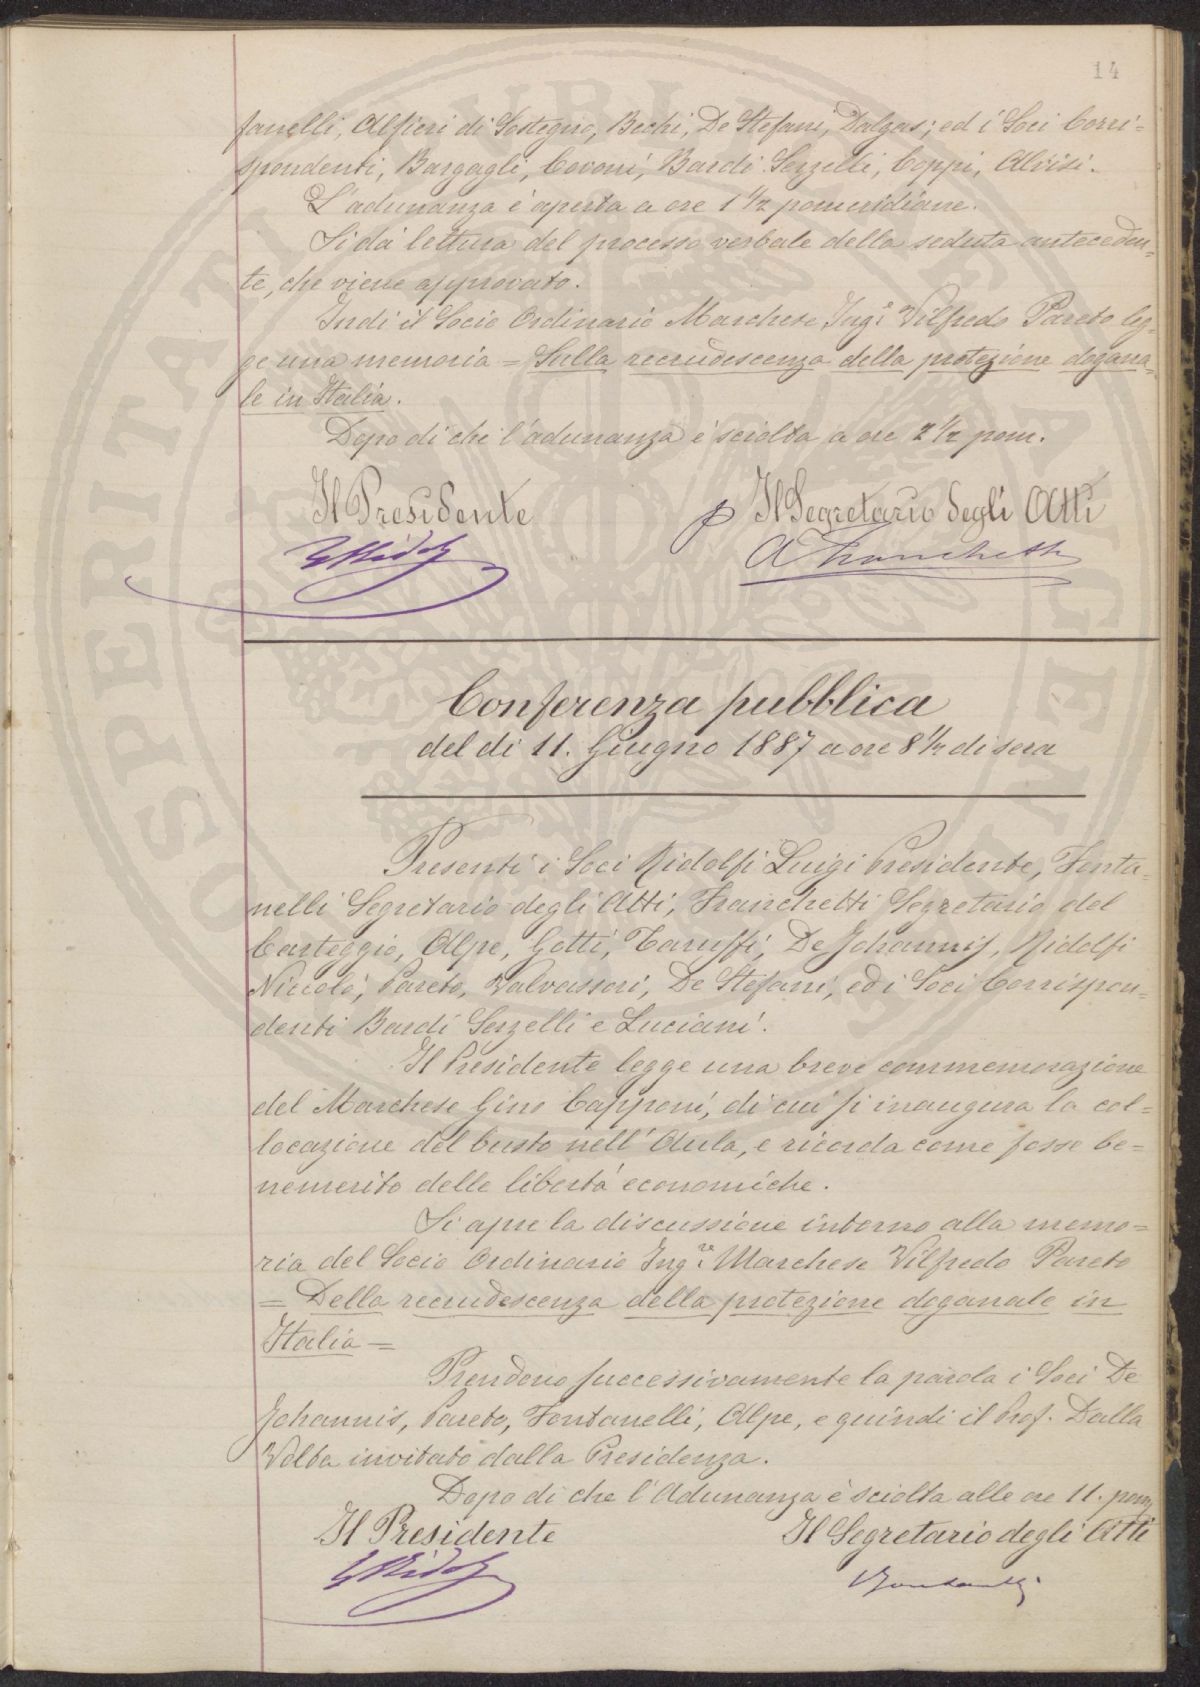 14
fanelli, Alfieri di Sostegno, Bechi, De Stefani, Dalgas; ed i Soci Corri=
spondenti, Bargagli, Covoni, Bardi Serzelli, Coppi, Alvisi.
L'adunanza è aperta a ore 1 1/2 pomeridiane.
Si dà lettura del processo verbale della seduta anteceden=
te, che viene approvato.
Indi il Socio Ordinario Marchese Ing.e Vilfredo Pareto leg=
ge una memoria = Sulla recrudescenza della protezione dogana=
le in Italia.
Dopo di che l'adunanza è sciolta a ore 2 1/2 pom.
Il Presidente
p Il Segretario degli Atti
LRidolfi
A Franchetti
Conferenza pubblica
del dì 11. Giugno 1887 a ore 8 1/2 di sera
Presenti i Soci Ridolfi Luigi Presidente, Fonta=
nelli Segretario degli Atti, Franchetti Segretario del
Carteggio, Alpe, Gotti, Taruffi, De Johannis, Ridolfi
Niccolò, Pareto, Valvassori, De Stefani, ed i Soci Corrispon=
denti Bardi Serzelli e Luciani.
Il Presidente legge una breve commemorazione
del Marchese Gino Capponi, di cui si inaugura la col=
locazione del busto nell'Aula, e ricorda come fosse be=
nemerito delle libertà economiche.
Si apre la discussione intorno alla memo=
ria del Socio Ordinario Ing.re Marchese Vilfredo Pareto
= Della recrudescenza della protezione doganale in
Italia =
Prendono successivamente la parola i Soci De
Johannis, Pareto, Fontanelli, Alpe, e quindi il Prof. Dalla
Volta invitato dalla Presidenza.
Dopo di che l'Adunanza è sciolta alle ore 11. pom
Il Presidente
Il Segretario degli Atti
LRidolfi
CFontanelli